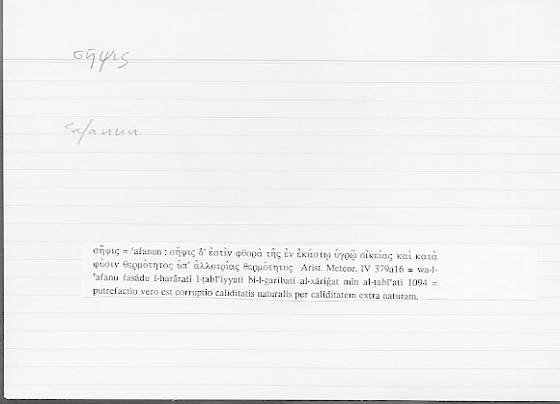 σῆψις
ʿafanun
σῆψις = ʿafanun : σῆψις δ' ἐστὶν φθορὰ τῆς ἐν ἑκάστῳ ὑγρῷ οἰκείας καὶ κατὰ
φύσιν θερμότητος ὑπ' ἀλλοτρίας θερμότητος Arist. Meteor. IV 379a16 = wa-l-
ʿafanu fasādu l-ḥarārati l-ṭabīʿīyyati bi-l-garībati al-xāriǧat min al-ṭabīʿati 1094 =
putrefactio vero est corruptio caliditatis naturalis per caliditatem extra naturam.